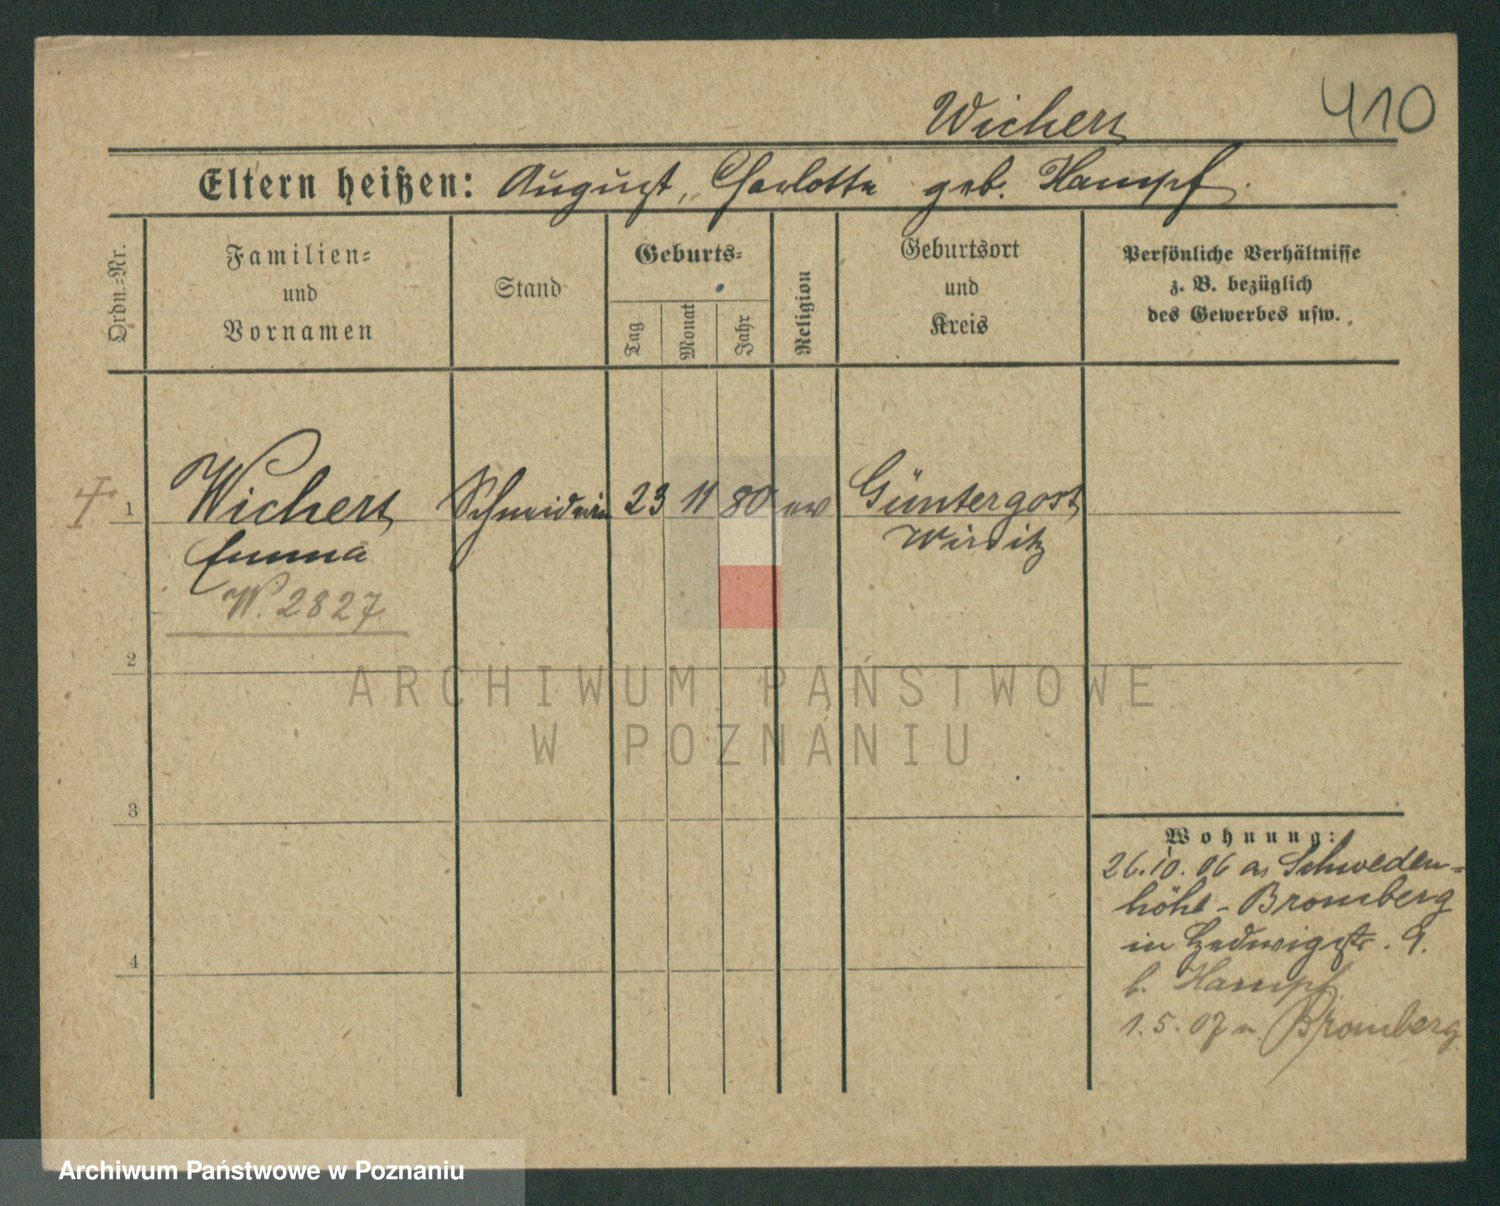 410
Wichert
Eltern heißen: August, Charlotte geb. Hampf.
Ordn.-Nr.
Familien-
und
Vornamen
Stand
Geburts-
Tag
Monat
Jahr
Religion
Geburtsort
und
Kreis
Persönliche Verhältnisse
z. B. bezüglich
des Gewerbes usw.
1 Wichert Schneiderin 23 11 80 ev Güntergost
Emma Wirsitz
W. 2827
2
3
4
Wohnung:
26.10.06 a. Schweden-
höhe - Bromberg
in Hedwigstr. 9.
b. Hampf
1.5.07 n. Bromberg
ARCHIWUM PAŃSTWOWE
W POZNANIU
Archiwum Państwowe w Poznaniu